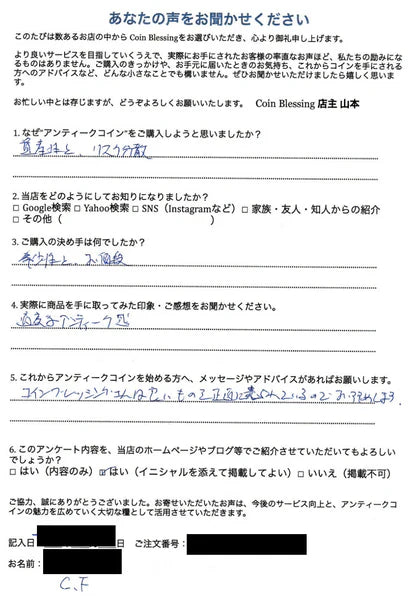 あなたの声をお聞かせください
このたびは数あるお店の中から Coin Blessingをお選びいただき、心より御礼申し上げます。
より良いサービスを目指していくうえで、実際にお手にされたお客様の率直なお声ほど、私たちの励みになるものはありません。ご購入のきっかけや、お手元に届いたときのお気持ち、これからコインを手にされる方へのアドバイスなど、どんな小さなことでも構いません。ぜひお聞かせいただけましたら嬉しく思います。
お忙しい中とは存じますが、どうぞよろしくお願いいたします。 Coin Blessing 店主 山本
1. なぜ"アンティークコイン"をご購入しようと思いましたか?
資産性と、リスク分散
2. 当店をどのようにしてお知りになりましたか?
□ Google検索 □ Yahoo検索 □ SNS（Instagramなど）□ 家族・友人・知人からの紹介
□ その他（ ）
3. ご購入の決め手は何でしたか?
希少性と、お値段
4. 実際に商品を手に取ってみた印象・ご感想をお聞かせください。
アンティーク感
5. これからアンティークコインを始める方へ、メッセージやアドバイスがあればお願いします。
コインブレッシングさんは ものを正直に売られているので、おすすめします
6. このアンケート内容を、当店のホームページやブログ等でご紹介させていただいてもよろしいでしょうか?
□ はい（内容のみ）☑ はい（イニシャルを添えて掲載してよい）□ いいえ（掲載不可）
ご協力、誠にありがとうございました。お寄せいただいたお声は、今後のサービス向上と、アンティークコインの魅力を広めていく大切な糧として活用させていただきます。
記入日 日 ご注文番号：
お名前：
C.F